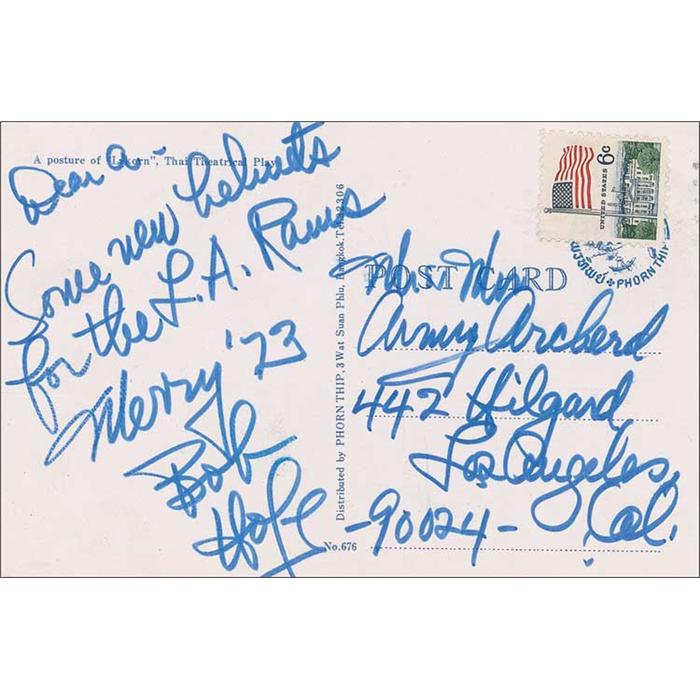 A posture of "Lakorn", Thai Theatrical Play
Dear A-
Some new helmets
for the L.A. Rams
Merry '73
Bob
Hope
Distributed by PHORN THIP, 3 Wat Suan Phlu, Bangkok. Tel. 32306
No.676
UNITED STATES 6c
PHORN THIP
POST CARD
Mr. + Mrs
Army Archerd
442 Hilgard
Los Angeles,
-90024- Cal.